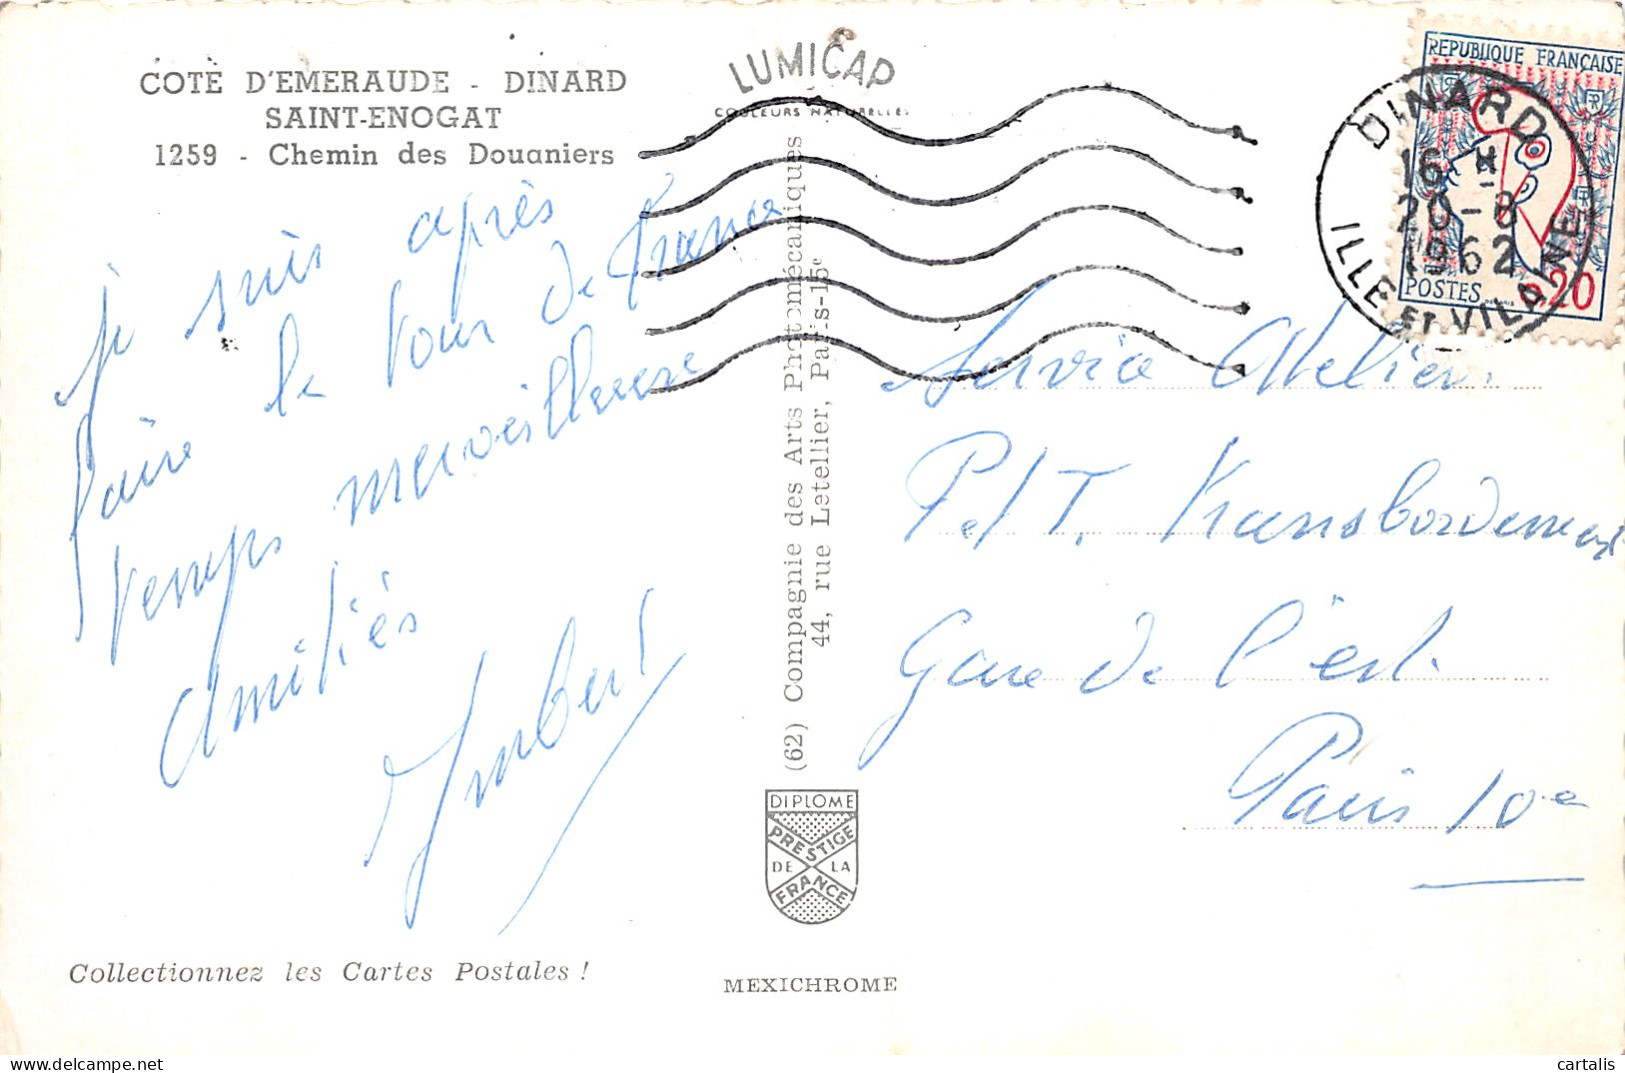 COTE D'EMERAUDE - DINARD
SAINT-ENOGAT
1259 - Chemin des Douaniers
je suis après
faire le tour de France
temps merveilleux
Amitiés
Imbert
Collectionnez les Cartes Postales !
LUMICAP
COULEURS NATURELLES
(62) Compagnie des Arts Photomécaniques
44, rue Letellier, Paris-15e
DIPLOME
PRESTIGE
DE LA
FRANCE
MEXICHROME
REPUBLIQUE FRANÇAISE
POSTES 0,20
DINARD
16 H
20-8
1962
ILLE ET VILAINE
Service Atelier
P.T.T. Transbordement
Gare de l'est
Paris 10e
cartalis